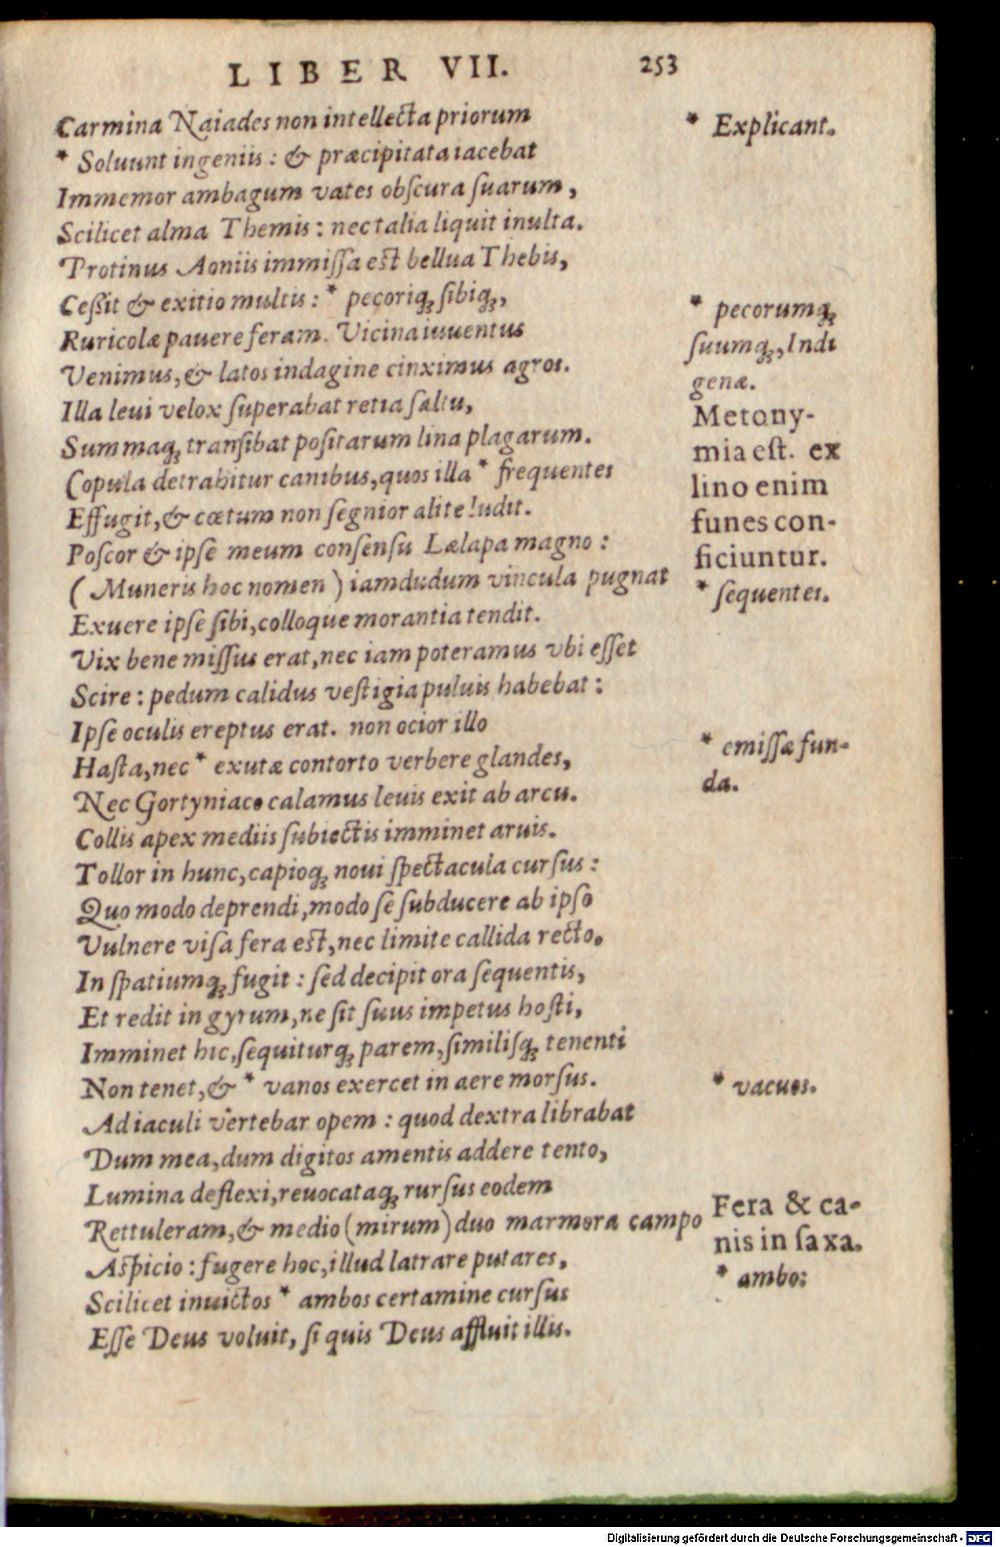 LIBER VII. 253
Carmina Naiades non intellecta priorum
* Soluunt ingeniis: & præcipitata iacebat
Immemor ambagum vates obſcura ſuarum,
Scilicet alma Themis: nec talia liquit inulta.
Protinus Aoniis immiſſa eſt bellua Thebis,
Ceßit & exitio multis: * pecoriq́ꝫ ſibiq́ꝫ,
Ruricolæ pauere feram. Vicina iuuentus
Venimus, & latos indagine cinximus agros.
Illa leui velox ſuperabat retia ſaltu,
Summaq́ꝫ tranſibat poſitarum lina plagarum.
Copula detrahitur canibus, quos illa * frequentes
Effugit, & cœtum non ſegnior alite ludit.
Poſcor & ipſe meum conſenſu Lælapa magno:
(Muneris hoc nomen) iamdudum vincula pugnat
Exuere ipſe ſibi, colloque morantia tendit.
Vix bene miſſus erat, nec iam poteramus vbi eſſet
Scire: pedum calidus veſtigia puluis habebat:
Ipſe oculis ereptus erat. non ocior illo
Haſta, nec * exutæ contorto verbere glandes,
Nec Gortyniaco calamus leuis exit ab arcu.
Collis apex mediis ſubiectis imminet aruis.
Tollor in hunc, capioq́ꝫ noui ſpectacula curſus:
Quo modo deprendi, modo ſe ſubducere ab ipſo
Vulnere viſa fera eſt, nec limite callida recto.
In ſpatiumq́ꝫ fugit: ſed decipit ora ſequentis,
Et redit in gyrum, ne ſit ſuus impetus hoſti,
Imminet hic, ſequiturq́ꝫ parem, ſimiliſq́ꝫ tenenti
Non tenet, & * vanos exercet in aere morſus.
Ad iaculi vertebar opem: quod dextra librabat
Dum mea, dum digitos amentis addere tento,
Lumina deflexi, reuocataq́ꝫ rurſus eodem
Rettuleram, & medio (mirum) duo marmora campo
Aſpicio: fugere hoc, illud latrare putares,
Scilicet inuictos * ambos certamine curſus
Eſſe Deus voluit, ſi quis Deus affluit illis.
* Explicant.
* pecorumq́ꝫ
ſuumq́ꝫ, Indi
genæ.
Metony-
mia eſt. ex
lino enim
funes con-
ficiuntur.
* ſequentes.
* emiſſæ fun-
da.
* vacuos.
Fera & ca-
nis in ſaxa.
* ambo:
Digitalisierung gefördert durch die Deutsche Forschungsgemeinschaft - DFG